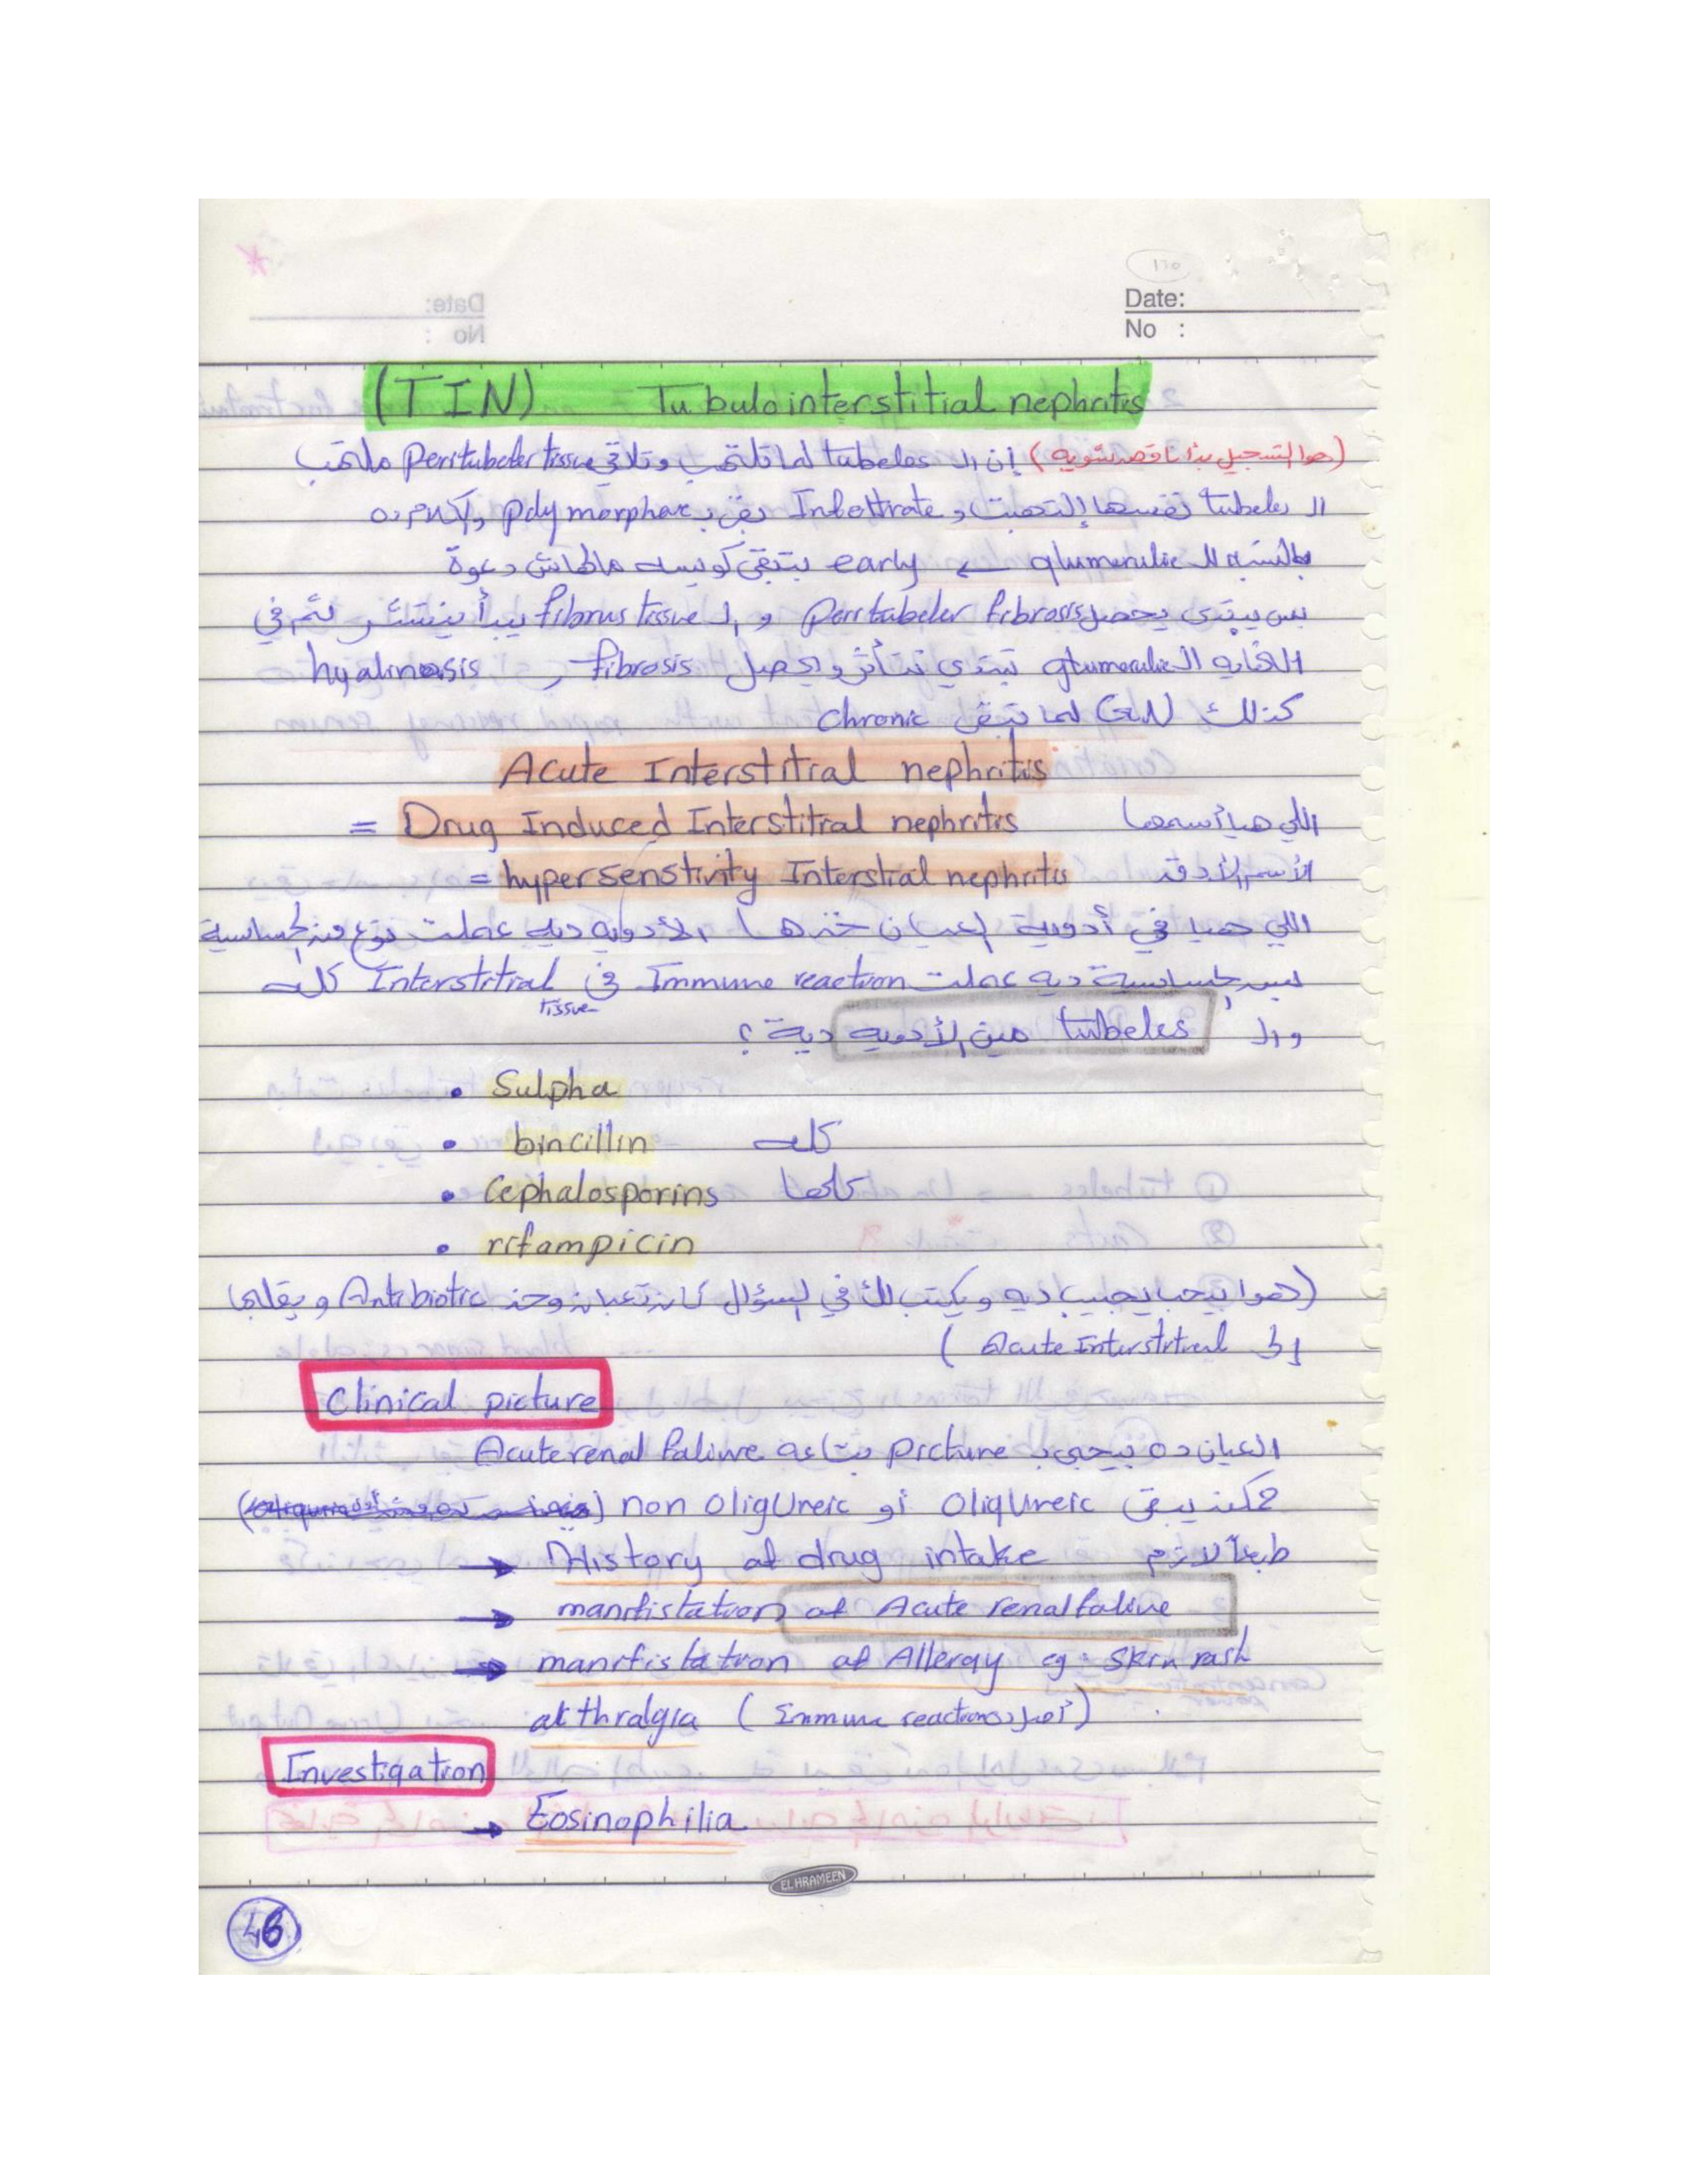 Date:
No :
(TIN) Tubulointerstitial nephritis
(هوا التسجيل بدأ ناقص شوية) إن الـ tubeles لما تلتهب وتلاقي peritubeler tissue ملتهب
الـ tubeles نفسها إلتهبت و polymorphse بقى بـ والكلام ده
بالنسبه للـ glumerulie ← early بتبقى كويسه مالهاش دعوة
بس يبتدى يحصل peritubeler fibrosis و الـ fibrus tissue يبدأ ينتشر ثم في
النهايه الـ glumerulie تبتدي تتأثر ويحصل fibrosis و hyalinosis
كذلك GN لما تبقى chronic
Acute Interstitial nephritis
= Drug Induced Interstitial nephritis اللي هيا أسمها
= hypersenstivity Interstial nephritis الأسم الأدق
اللي هيا في أدوية العيان خدها الأدويه ديه عملت نوع من الحساسية
الحساسية ديه عملت Immune reaction في Interstitial tissue كله
والـ tubeles مين الأدويه دية؟
• Sulpha
• bincillin كله
• Cephalosporins كلها
• rifampicin
(هوا بيحب يجيب ديه ويكتب لك في السؤال كان تعبان وخد Antibiotic و
Acute Interstitial )
Clinical picture
العيان ده بيجى بـ picture بتاعة Acute renal faliure
ممكن يبقى OligUreic أو non OligUreic
→ History of drug intake طبعاً لازم
→ manifistation of Acute renal faliure
→ manifistation of Allergy eg: Skin rash
atthralgia ( Immune reaction أصل ده)
Investigation
→ Eosinophilia
EL HRAMEEN
46